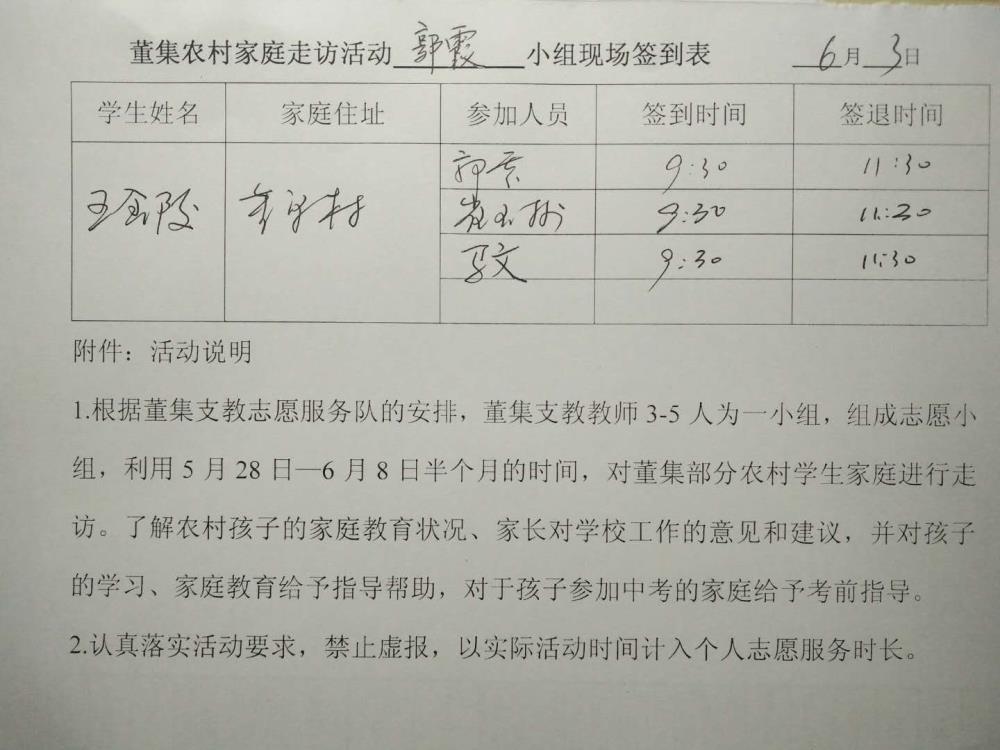 董集农村家庭走访活动 郭霞 小组现场签到表 6月3日
学生姓名 家庭住址 参加人员 签到时间 签退时间
郭霞 9:30 11:30
王金陵 村 9:30 11:30
马文 9:30 11:30
附件：活动说明
1.根据董集支教志愿服务队的安排，董集支教教师 3-5 人为一小组，组成志愿小
组，利用 5 月 28 日—6 月 8 日半个月的时间，对董集部分农村学生家庭进行走
访。了解农村孩子的家庭教育状况、家长对学校工作的意见和建议，并对孩子
的学习、家庭教育给予指导帮助，对于孩子参加中考的家庭给予考前指导。
2.认真落实活动要求，禁止虚报，以实际活动时间计入个人志愿服务时长。